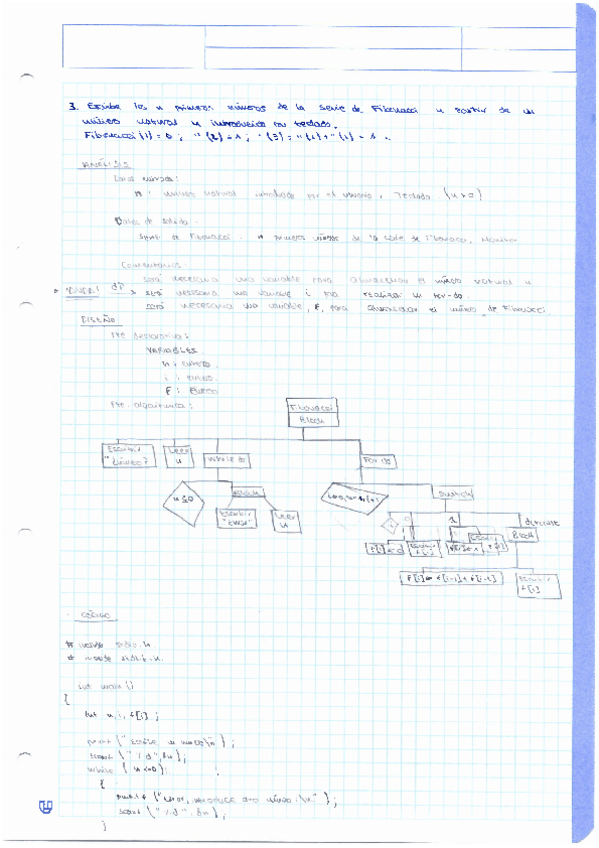 3. Escribe los n primeros números de la serie de Fibonacci a partir de un
número natural n introducido por teclado.
Fibonacci (1) = 0 ; " (2) = 1 ; " (3) = " (2) + " (1) = 1.
ANÁLISIS
Datos entrada:
n : número natural introducido por el usuario, Teclado (n>0)
Datos de salida.
serie de Fibonacci. n primeros números de la serie de Fibonacci, Monitor
Comentarios
será necesaria una variable para almacenar el número natural n
será necesaria una variable i para realizar un for-do.
será necesaria una variable, F, para almacenar el número de Fibonacci
DISEÑO
Pte declarativa:
VARIABLES
n : ENTERO.
i : ENTERO.
F : ENTERO
Pte. algorítmica:
Fibonacci
Block
Escribir
"número?"
Leer
n
While do
For do
n≤0
Block
Escribir
"Error"
Leer
n
switch
0
1
default
f[i]=0
Escribir
f[i]
f[i]=1
Escribir
f[i]
Block
f[i]= f[i-1]+f[i-2]
Escribir
f[i]
CÓDIGO
# include stdio.h
# include stdlib.h
int main ()
{
int n, i, f[i] ;
printf (" Escribe un numero\n ) ;
scanf (" %d",&n) ;
while ( n<=0)
{
printf ("Error, introduce otro número \n" ) ;
scanf (" %d", &n) ;
}